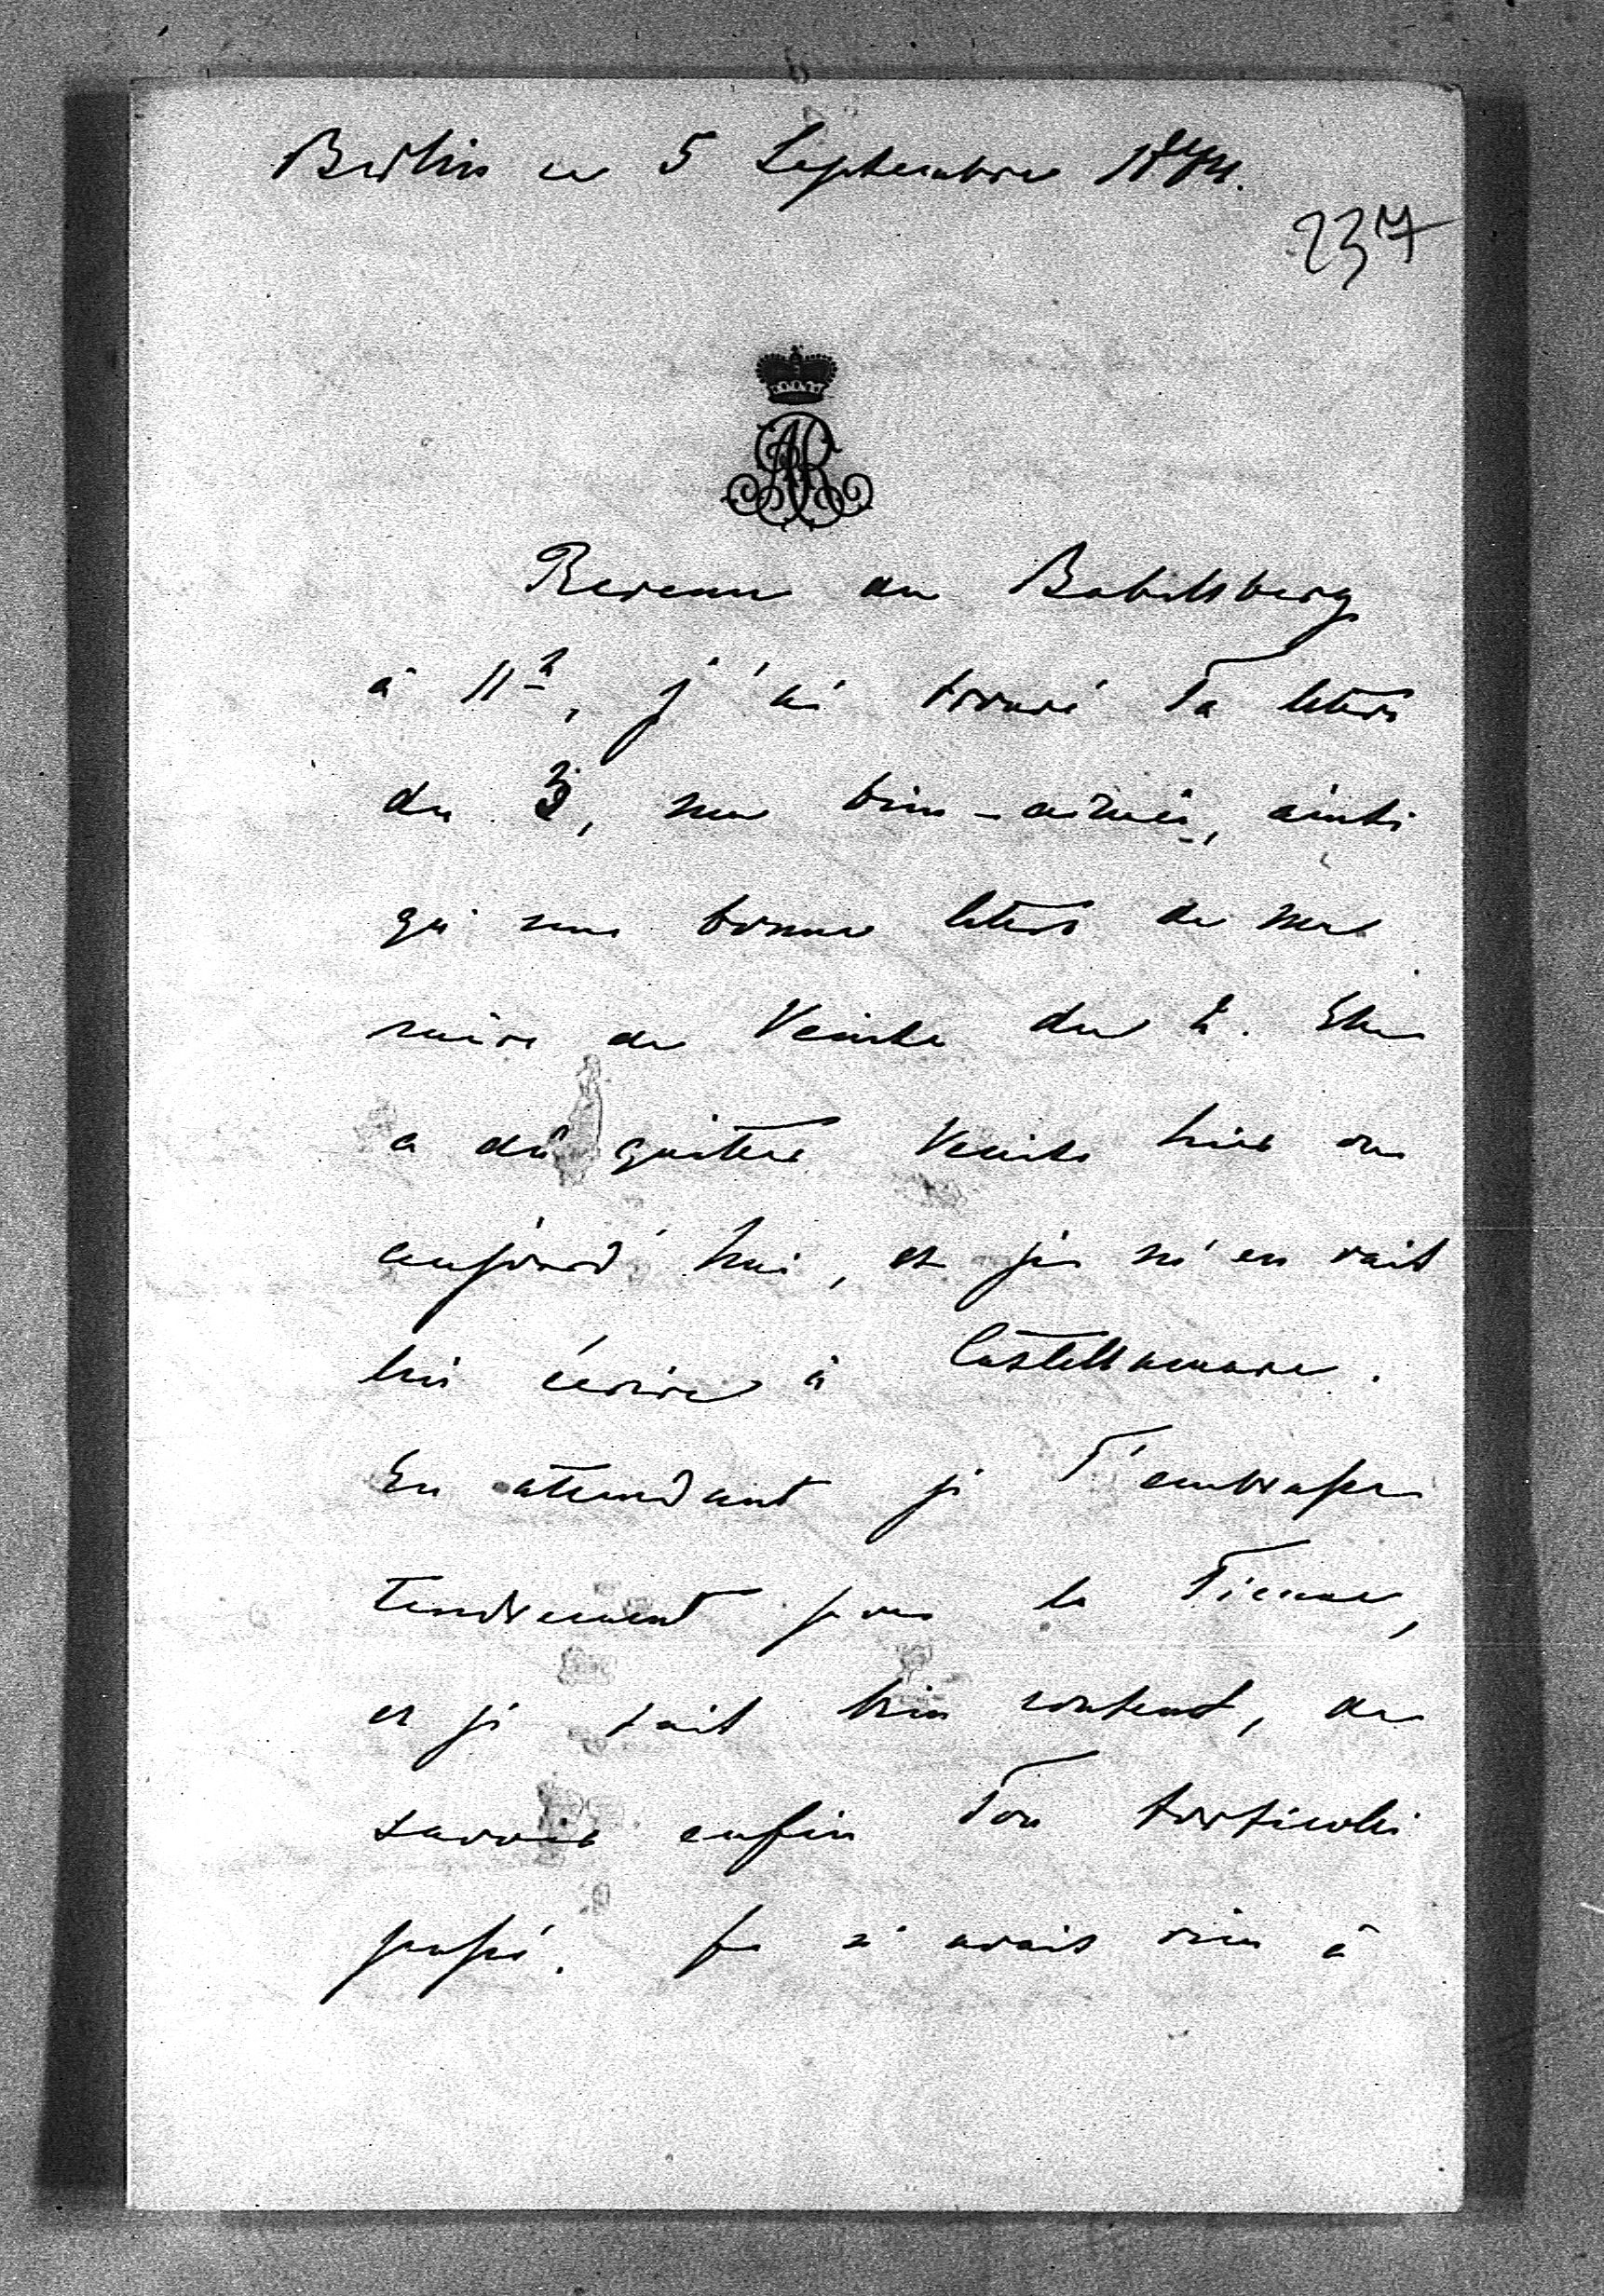 Berlin ce 5 Septembre 1874.
237
AR
Revenu du Babelsberg
à 11h, j'ai trouvé Ta lettre
du 3, ma bien-aimée, ainsi
qu'une bonne lettre de ma
mère de Venise du 2. Elle
a dû quitter Venise hier ou
aujourd'hui, et je m'en vais
lui écrire à Castellamare.
En attendant je T'embrasse
tendrement pour la Tienne,
et je suis bien content, de
savoir enfin Ton torticolis
passé. Je n'avais rien à